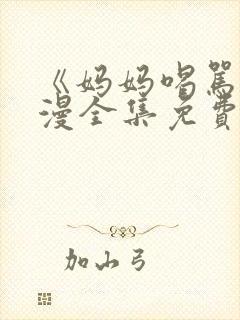 《妈妈喝骂
漫全集免费
加山弓